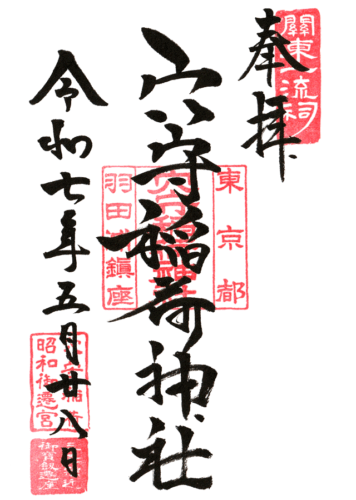 關東一流祠
奉拝
東京都
穴守稲荷神社
羽田浦鎮座
令和七年五月廿八日
昭和御遷宮